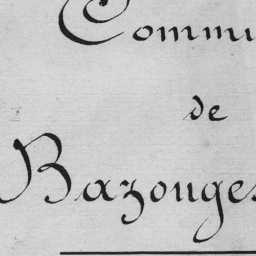 Commu
de
Bazouges